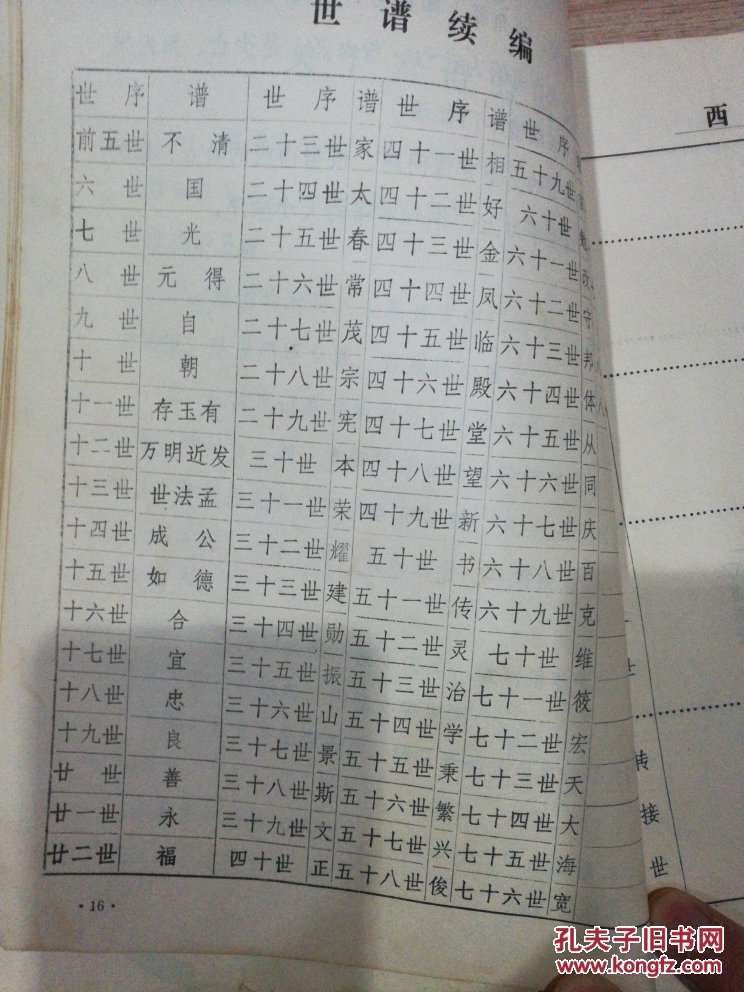 世谱续编
世序 谱 世序 谱 世序 谱 世序
前五世 不清 二十三世 家 四十一世 相 五十九世
六世 国 二十四世 太 四十二世 好 六十世
七世 光 二十五世 春 四十三世 金 六十一世
八世 元得 二十六世 常 四十四世 凤 六十二世 守
九世 自 二十七世 茂 四十五世 临 六十三世 邦
十世 朝 二十八世 宗 四十六世 殿 六十四世 体
十一世 存玉有 二十九世 宪 四十七世 堂 六十五世 从
十二世 万明近发 三十世 本 四十八世 望 六十六世 同
十三世 世法孟 三十一世 荣 四十九世 新 六十七世 庆
十四世 成公 三十二世 耀 五十世 书 六十八世 百
十五世 如德 三十三世 建 五十一世 传 六十九世 克
十六世 合 三十四世 勋 五十二世 灵 七十世 维
十七世 宜 三十五世 振 五十三世 治 七十一世 筱
十八世 忠 三十六世 山 五十四世 学 七十二世 宏
十九世 良 三十七世 景 五十五世 秉 七十三世 天
廿世 善 三十八世 斯 五十六世 繁 七十四世 大
廿一世 永 三十九世 文 五十七世 兴 七十五世 海
廿二世 福 四十世 正 五十八世 俊 七十六世 宽
·16·
西
世
转
接
世
孔夫子旧书网
www.kongfz.com